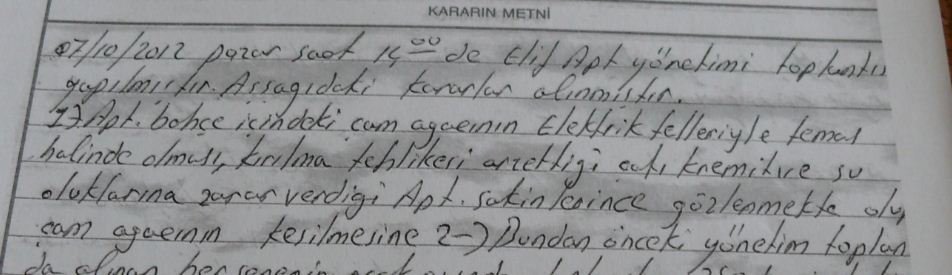 KARARIN METNİ
07/10/2012 pazar saat 14 00 de Elif Apt yönetimi toplantısı
yapılmıştır. Assagıdaki kararlar alınmıştır.
1-) Apt. bahçe içindeki çam agacının Elektrik telleriyle temas
halinde olması, kırılma tehlikesi arzettigi çatı kremit ve su
oluklarına zarar verdigi Apt. sakinlerince gözlenmekte olup
çam agacının kesilmesine 2-) Bundan önceki yönetim toplan
da alınan her senenin